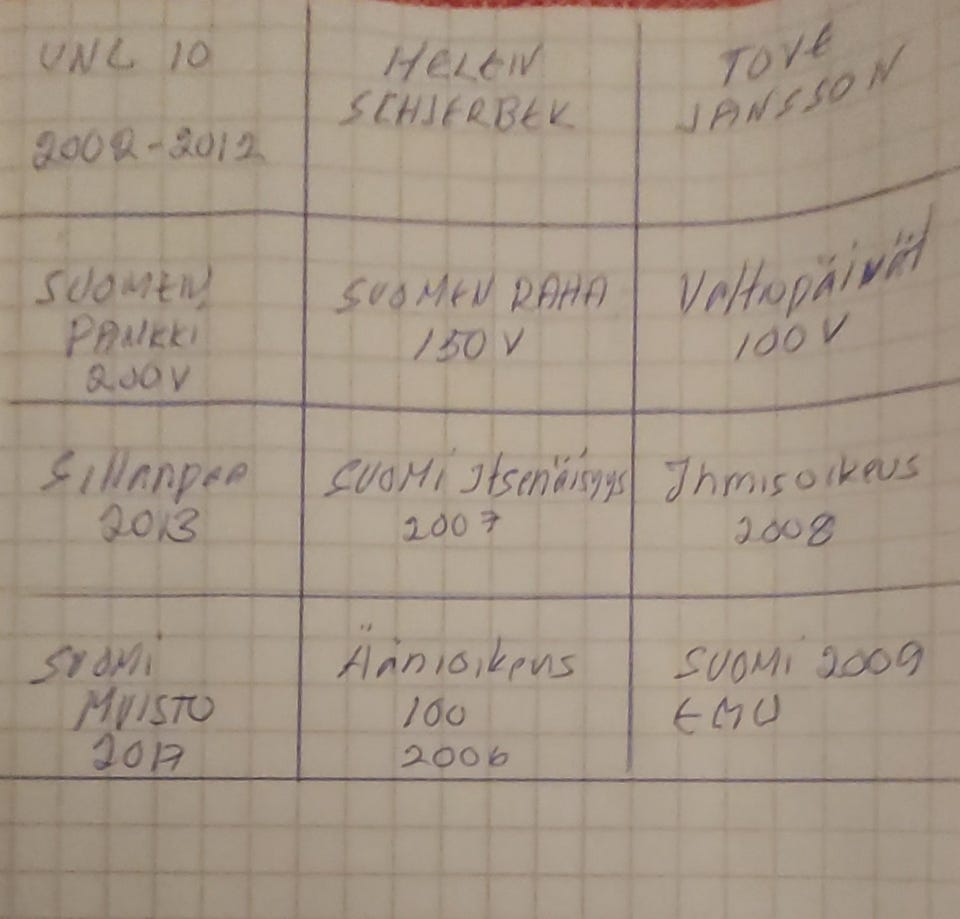 VNL 10
2002-2012
HELEN
SCHJERBEK
TOVE
JANSSON
SUOMEN
PANKKI
200V
SUOMEN RAHA
150 V
Valtiopäivät
100 V
Sillanpaa
2013
SUOMI Itsenäisyys
2007
Ihmisoikeus
2008
SUOMI
MUISTO
2017
Äänioikeus
100
2006
SUOMI 2009
EMU